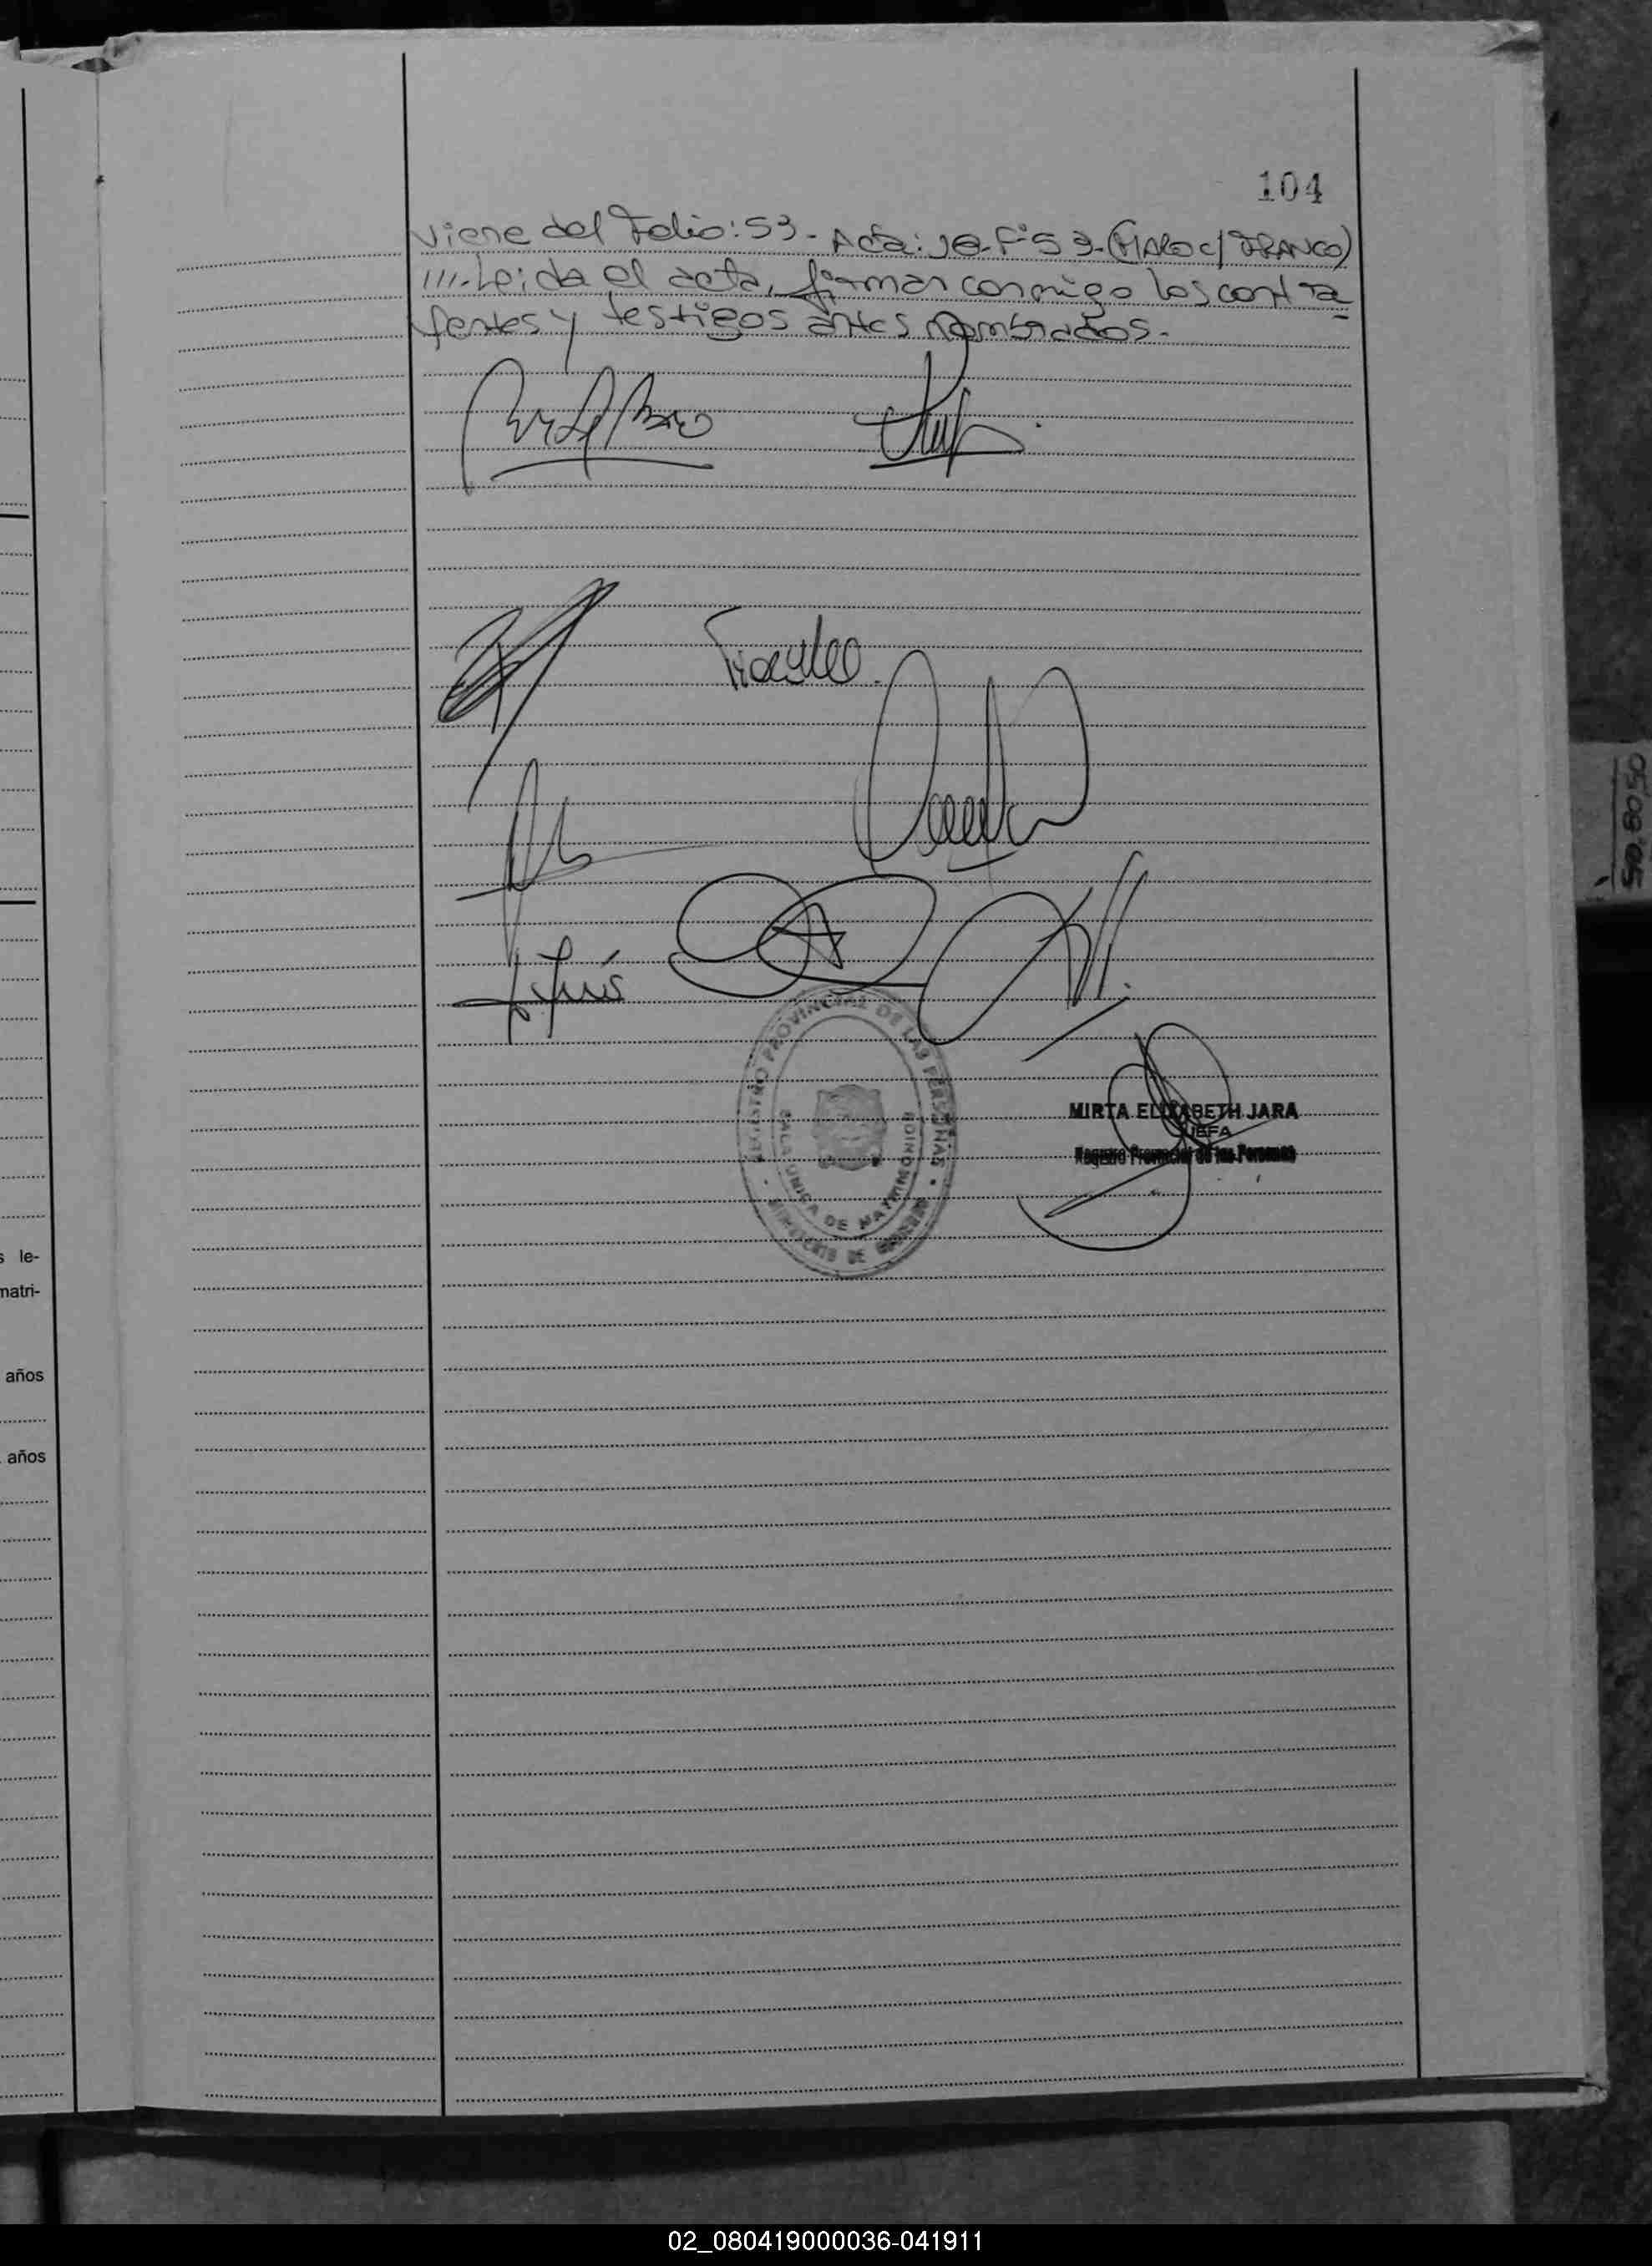 104
Viene del Folio: 53 - Acta: 10 - Fº 53 - ( c/ FRANCO)
///.Leida el acta, firman conmigo los contra
yentes y testigos antes nombrados.-
REGISTRO PROVINCIAL DE LAS PERSONAS
SALA UNICA DE MATRIMONIO
MINISTERIO DE GOBIERNO
MIRTA ELIZABETH JARA
JEFA
Registro Provincial de las Personas
s le-
matri-
años
años
02_080419000036-041911